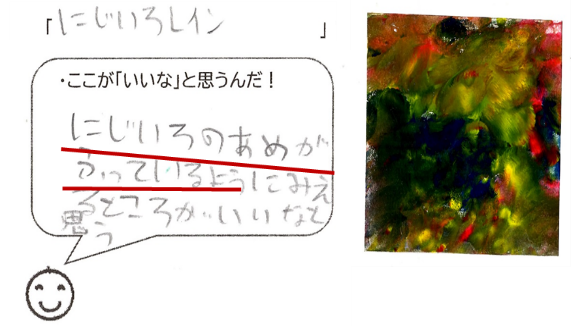 「にじいろレイン」
・ここが「いいな」と思うんだ！
にじいろのあめが
ふっているようにみえ
るところがいいなと
思う